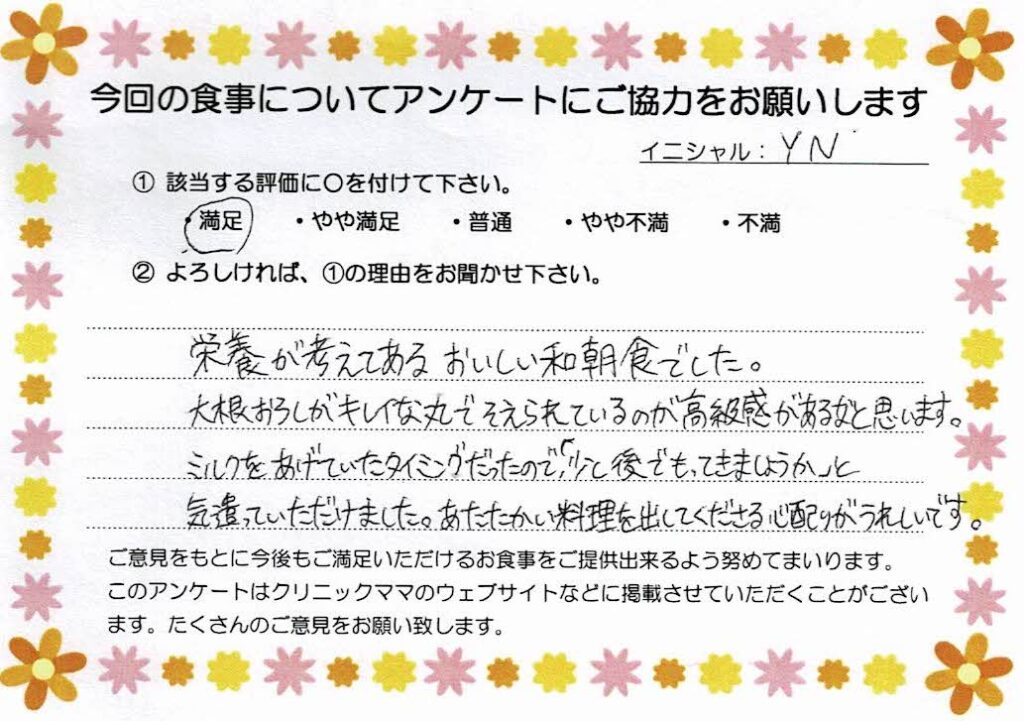 今回の食事についてアンケートにご協力をお願いします
イニシャル：YN
① 該当する評価に〇を付けて下さい。
・満足 ・やや満足 ・普通 ・やや不満 ・不満
② よろしければ、①の理由をお聞かせ下さい。
栄養が考えてある おいしい和朝食でした。
大根おろしがキレイな丸でそえられているのが高級感があるなと思います。
ミルクをあげていたタイミングだったので、「少し後でもってきましょうか」と
気遣っていただけました。あたたかい料理を出してくださる心配りがうれしいです。
ご意見をもとに今後もご満足いただけるお食事をご提供出来るよう努めてまいります。
このアンケートはクリニックママのウェブサイトなどに掲載させていただくことがござい
ます。たくさんのご意見をお願い致します。